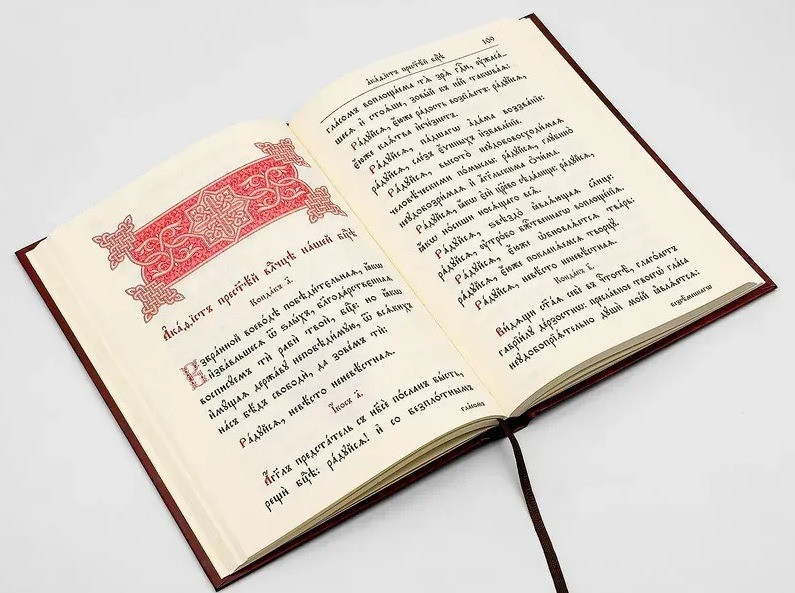 А҆ка́ѳїстъ прест҃ѣ́й влⷣчцѣ на́шей бцⷣѣ
Конда́къ а҃.
Взбра́нной воево́дѣ побѣди́тельнаѧ, ꙗ҆́кѡ
и҆зба́вльшесѧ ѿ ѕлы́хъ, благода́рственнаѧ
воспису́емъ тѝ рабѝ твоѝ, бцⷣе: но ꙗ҆́кѡ
и҆мꙋ́щаѧ держа́вꙋ непобѣди́мꙋю, ѿ всѧ́кихъ
на́съ бѣ́дъ свободѝ, да зове́мъ тѝ:
Ра́дꙋйсѧ, невѣ́сто неневѣ́стнаѧ.
І҆́косъ а҃.
А҆́гг҃лъ предста́тель съ нб҃сѐ по́сланъ бы́сть,
рещѝ бцⷣѣ: ра́дꙋйсѧ! и҆ со безпло́тнымъ
гла́сомъ
а҆ка́ѳїстъ прест҃ѣ́й бцⷣѣ 109
гла́сомъ воплоща́ема тѧ̀ зрѧ̀ гдⷭ҇и, ᲂу҆жаса́-
шесѧ и҆ стоѧ́ше, зовы́й къ не́й такова́ѧ:
Ра́дꙋйсѧ, є҆́юже ра́дость возсїѧ́етъ: ра́дꙋйсѧ,
є҆́юже клѧ́тва и҆зче́знетъ.
Ра́дꙋйсѧ, па́дшагѡ а҆да́ма воззва́нїе:
ра́дꙋйсѧ, сле́зъ є҆́ѵиныхъ и҆збавле́нїе.
Ра́дꙋйсѧ, высото̀ неꙋдобовосходи́маѧ
человѣ́ческими по́мыслы: ра́дꙋйсѧ, глꙋбино̀
неꙋдобозри́маѧ и҆ а҆́гг҃льскима ѻ҆чи́ма.
Ра́дꙋйсѧ, ꙗ҆́кѡ є҆сѝ цр҃е́во сѣда́лище: ра́дꙋйсѧ,
ꙗ҆́кѡ но́сиши носѧ́щаго всѧ̑.
Ра́дꙋйсѧ, ѕвѣздо̀ ꙗ҆влѧ́ющаѧ сл҃нце:
ра́дꙋйсѧ, ᲂу҆тро́бо бж҃е́ственнагѡ воплоще́нїѧ.
Ра́дꙋйсѧ, є҆́юже ѡ҆бновлѧ́етсѧ тва́рь:
ра́дꙋйсѧ, є҆́юже покланѧ́емсѧ творцꙋ̀.
Ра́дꙋйсѧ, невѣ́сто неневѣ́стнаѧ.
Конда́къ в҃.
Ви́дѧщи ст҃а́ѧ себѐ въ чⷭ҇тотѣ̀, глаго́летъ
гаврїи́лꙋ де́рзостнѡ: пресла́вное твоегѡ̀ гла́са
неꙋдобопрїѧ́тельно дꙋшѝ мое́й ꙗ҆влѧ́етсѧ:
безсѣ́меннагѡ